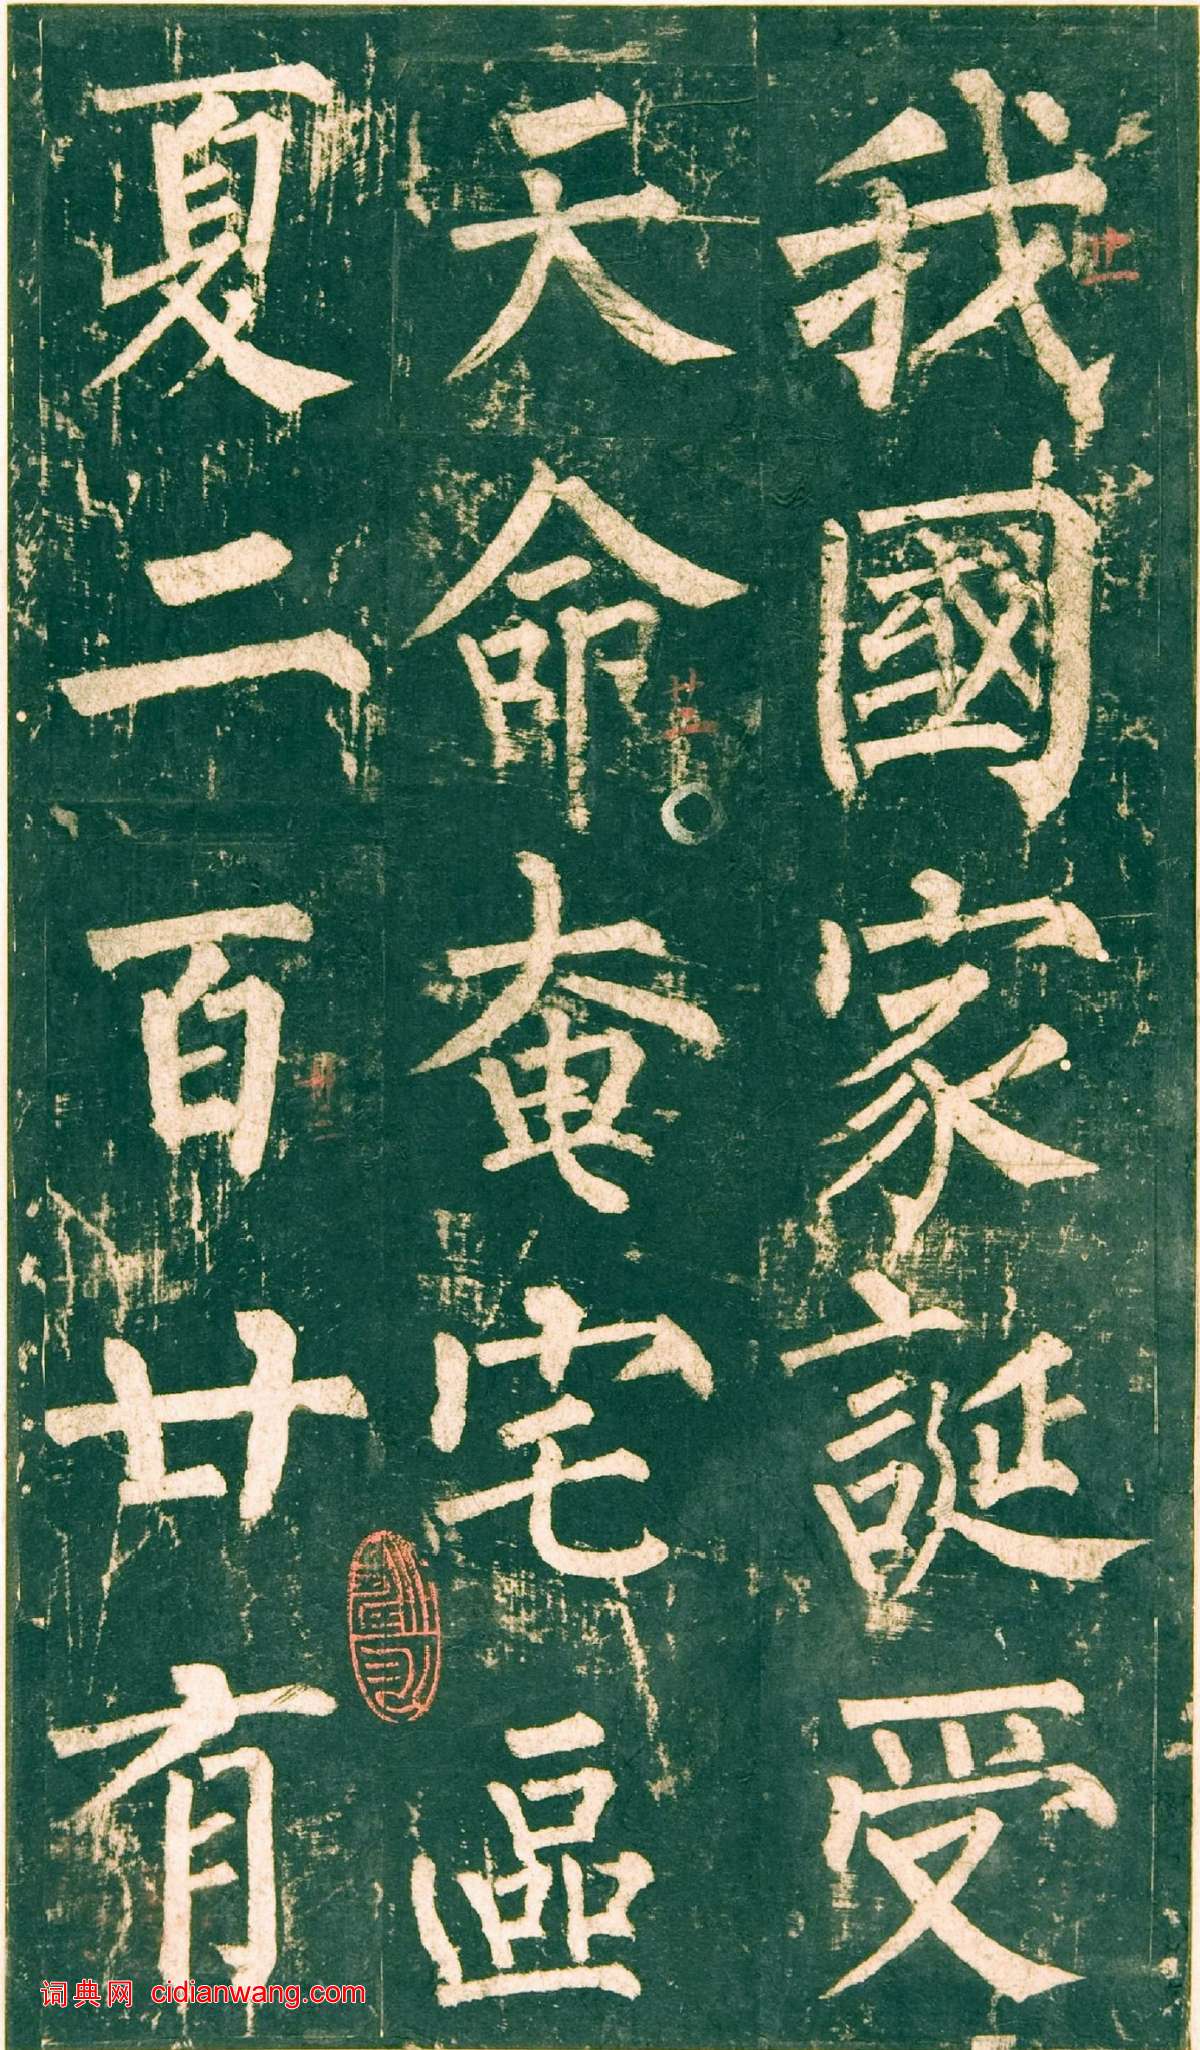 我國家誕受
天命奄宅區
夏二百廿有
词典网 cidianwang.com